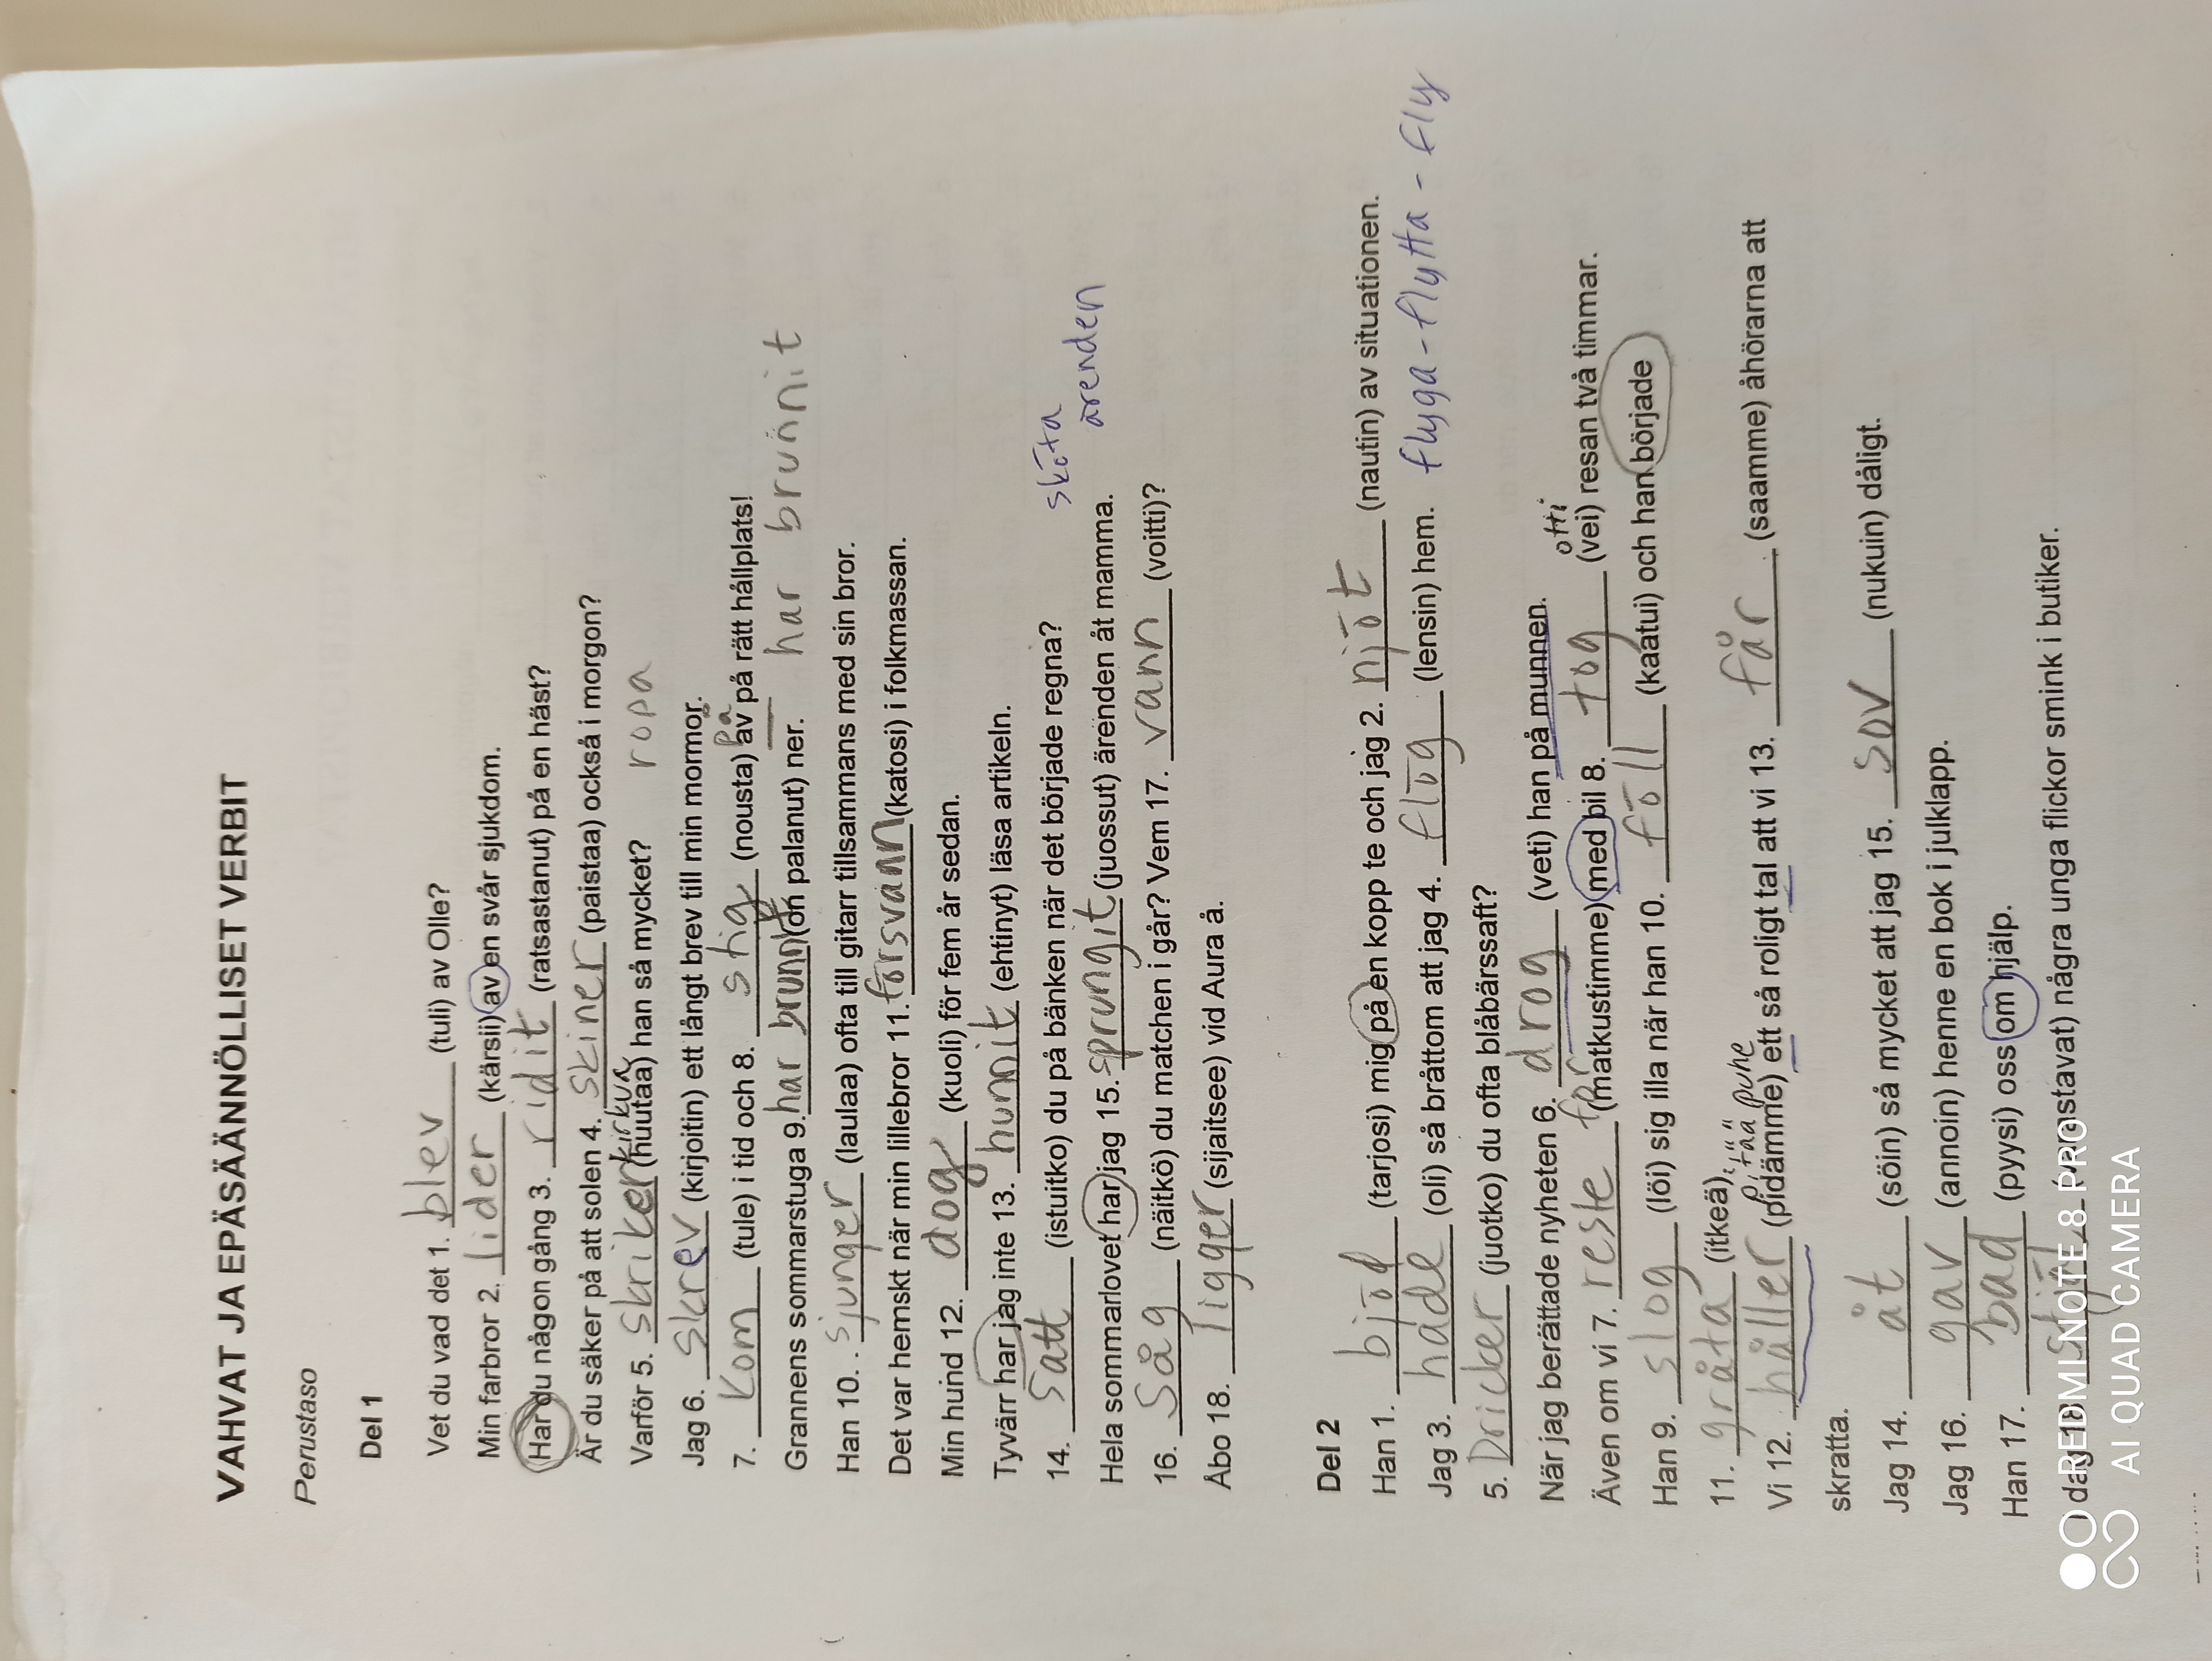 VAHVAT JA EPÄSÄÄNNÖLLISET VERBIT
Perustaso
Del 1
Vet du vad det 1. blev (tuli) av Olle?
Min farbror 2. lider (kärsii) av en svår sjukdom.
Har du någon gång 3. ridit (ratsastanut) på en häst?
Är du säker på att solen 4. skiner (paistaa) också i morgon?
kirkua
Varför 5. skriker (huutaa) han så mycket? ropa
Jag 6. skrev (kirjoitin) ett långt brev till min mormor.
på
7. kom (tule) i tid och 8. stig (nousta) av på rätt hållplats!
Grannens sommarstuga 9. har brunnit (on palanut) ner. har brunnit
Han 10. sjunger (laulaa) ofta till gitarr tillsammans med sin bror.
Det var hemskt när min lillebror 11. försvann (katosi) i folkmassan.
Min hund 12. dog (kuoli) för fem år sedan.
Tyvärr har jag inte 13. hunnit (ehtinyt) läsa artikeln.
14. satt (istuitko) du på bänken när det började regna? sköta
Hela sommarlovet har jag 15. sprungit (juossut) ärenden åt mamma. ärenden
16. såg (näitkö) du matchen i går? Vem 17. vann (voitti)?
Åbo 18. ligger (sijaitsee) vid Aura å.
Del 2
Han 1. bjöd (tarjosi) mig på en kopp te och jag 2. njöt (nautin) av situationen.
Jag 3. hade (oli) så bråttom att jag 4. flög (lensin) hem. flyga - flytta - fly
5. Dricker (juotko) du ofta blåbärssaft?
När jag berättade nyheten 6. drog (veti) han på munnen.
otti
Även om vi 7. reste (matkustimme) med bil 8. tog (vei) resan två timmar.
Han 9. slog (löi) sig illa när han 10. föll (kaatui) och han började
11. gråta (itkeä).
pitää puhe
Vi 12. håller (pidämme) ett så roligt tal att vi 13. får (saamme) åhörarna att
skratta.
Jag 14. åt (söin) så mycket att jag 15. sov (nukuin) dåligt.
Jag 16. gav (annoin) henne en bok i julklapp.
Han 17. bad (pyysi) oss om hjälp.
I dag 18. några unga flickor smink i butiker.
REDMI NOTE 8 PRO
AI QUAD CAMERA